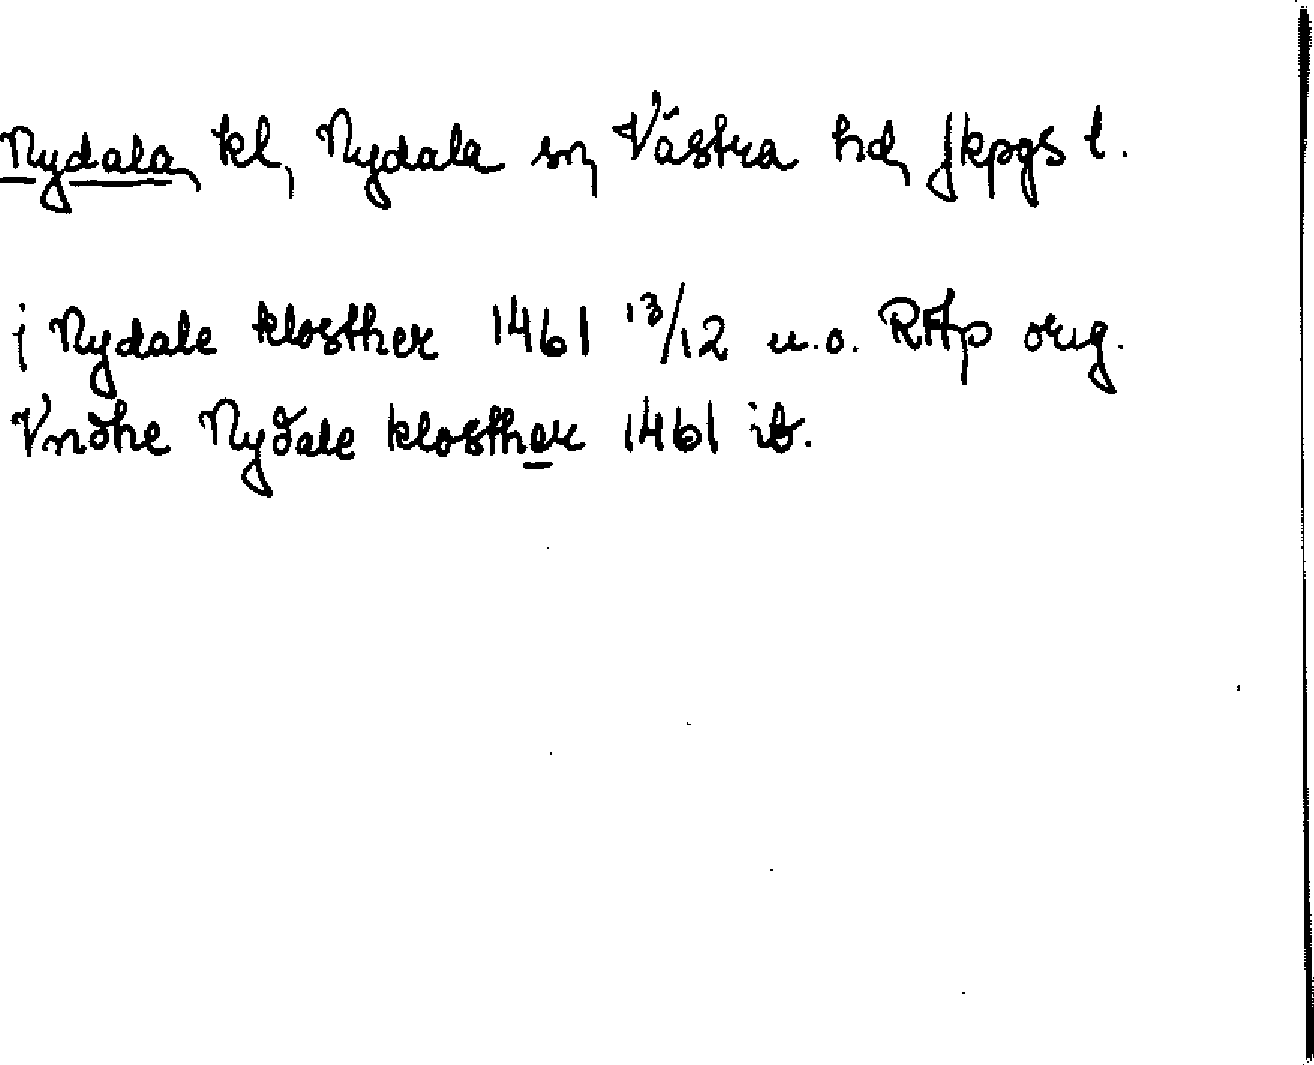 Nydala, kl, Nydala sn, Västra hd, Jkpgs l.
j Nydale klosther 1461 13/12 u.o. RAp orig.
Vndhe Nydale klosther 1461 ib.